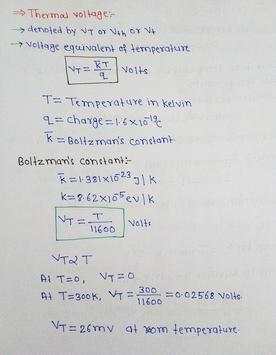 ⇒ Thermal voltage:-
→ denoted by VT or Vth or Vt
→ Voltage equivalent of temperature
VT = k̅T/q Volts
T = Temperature in kelvin
q = charge = 1.6×10⁻¹⁹
k̅ = Boltzman's constant
Boltzman's constant:-
k̅ = 1.381×10⁻²³ J/k
k = 8.62×10⁻⁵ ev/k
VT = T/11600 Volts
VT ∝ T
At T=0, VT = 0
At T=300k, VT = 300/11600 = 0.02568 Volts
VT = 26mV at room temperature